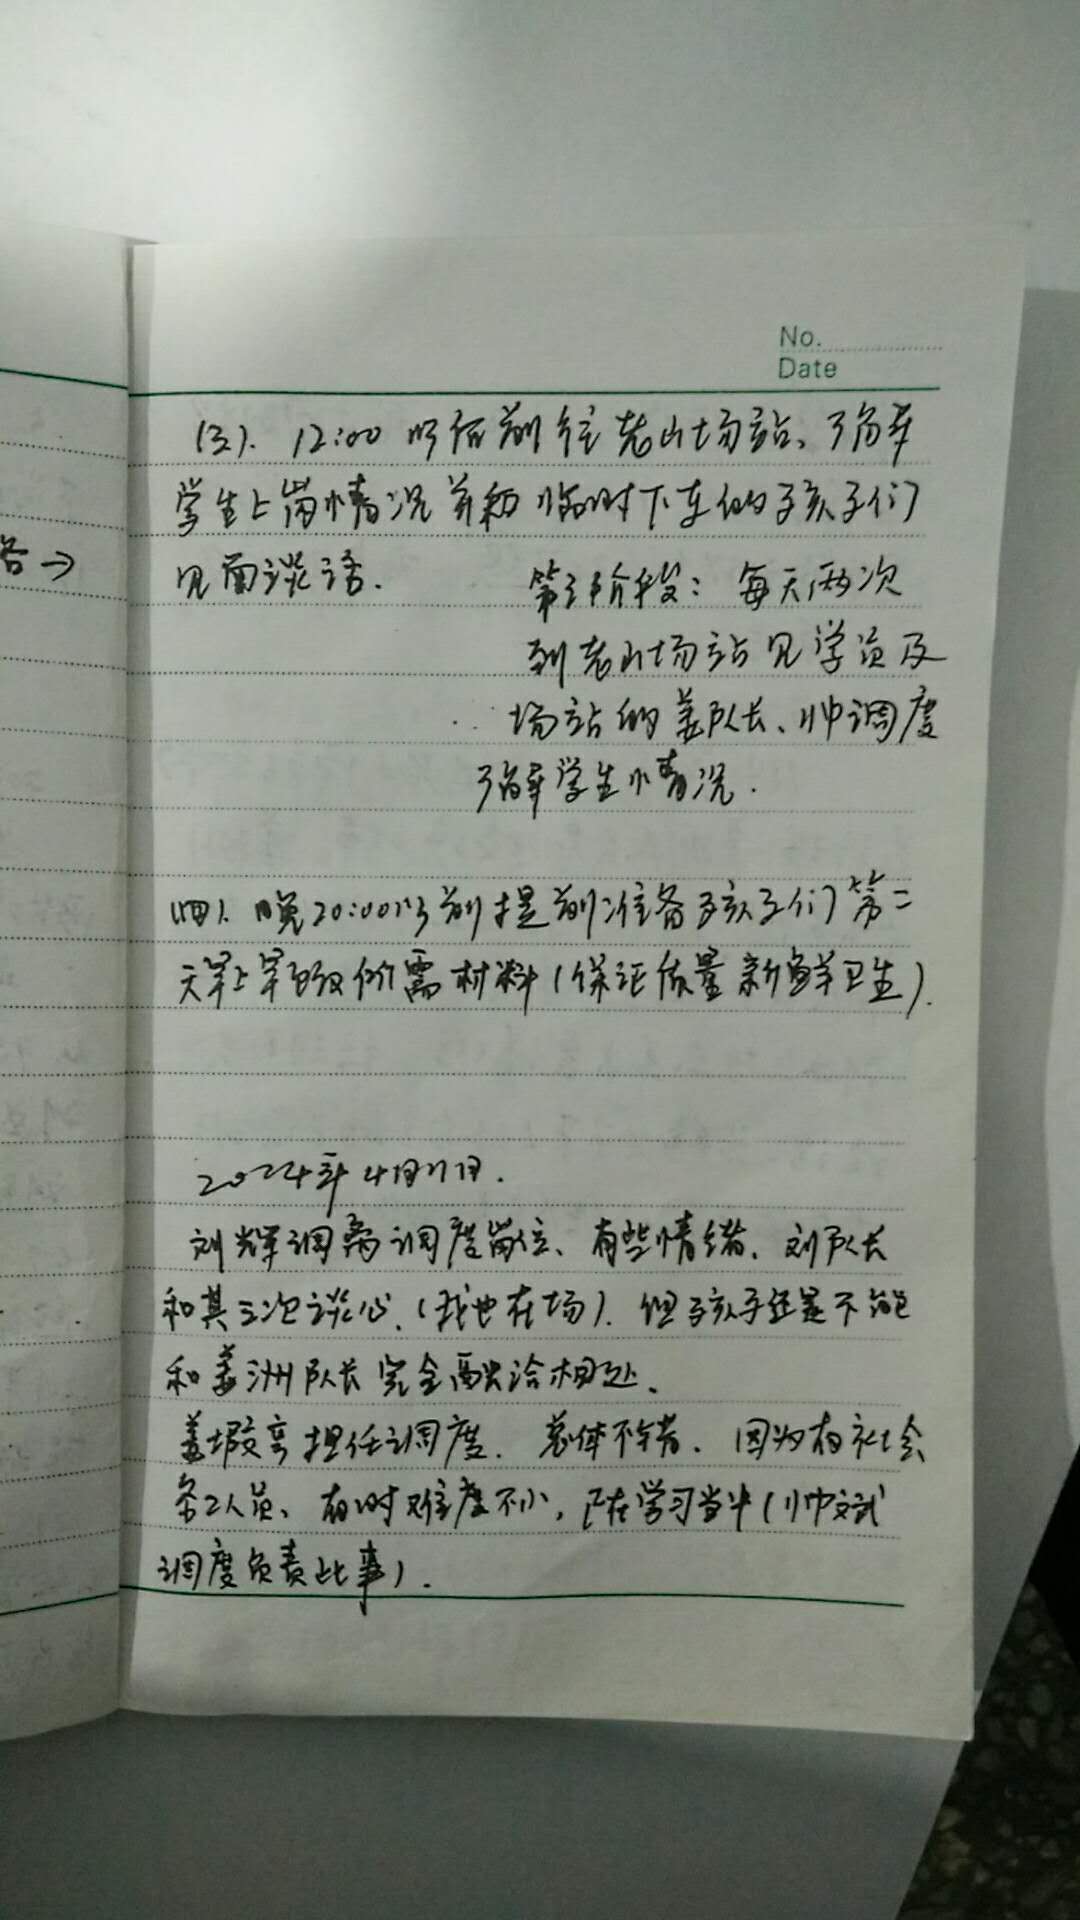 No.
Date
(三). 12:00以后前往老山场站、了解
学生上岗情况并和临时下车的孩子们
答→
见面谈话.
第三阶段: 每天两次
到老山场站见学员及
场站的姜队长、帅调度
了解学生情况.
(四). 晚20:00以前提前准备孩子们第二
天早上早餐所需材料(保证质量新鲜卫生).
2024年4月17日.
刘辉调离调度岗位、有些情绪. 刘队长
和其三次谈心、(我也在场). 但孩子还是不能
和姜洲队长完全融洽相处、
姜 担任调度. 总体不错. 因为有社会
务工人员、有时难度不小, 正在学习当中(帅文武
调度负责此事).